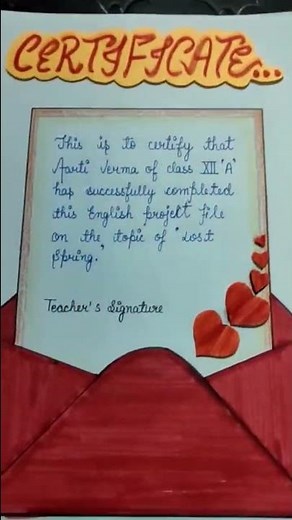 CERTIFICATE...
This is to certify that
Aarti Verma of class XII 'A'
has successfully completed
this English project file
on the topic of "Lost
Spring."
Teacher's Signature